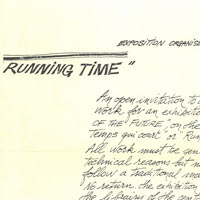 EXPOSITION ORGANISE
RUNNING TIME"
An open invitation to
work for an exhibit
OF THE FUTURE," on the
Temps qui court" or "Run
All work must be gen
technical reasons but n
follow a traditional ma
No return. The exhibition
the libraries of the